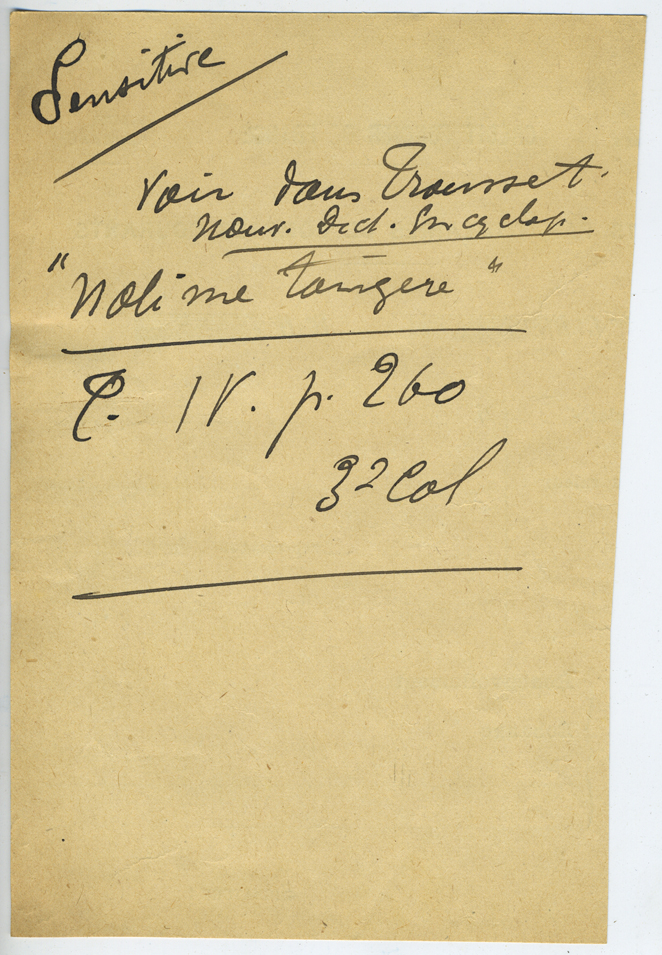 Sensitive
Voir dans Trousset.
Nouv. Dict. Encyclop.
"Noli me tangere"
T. IV. p. 260
3e Col